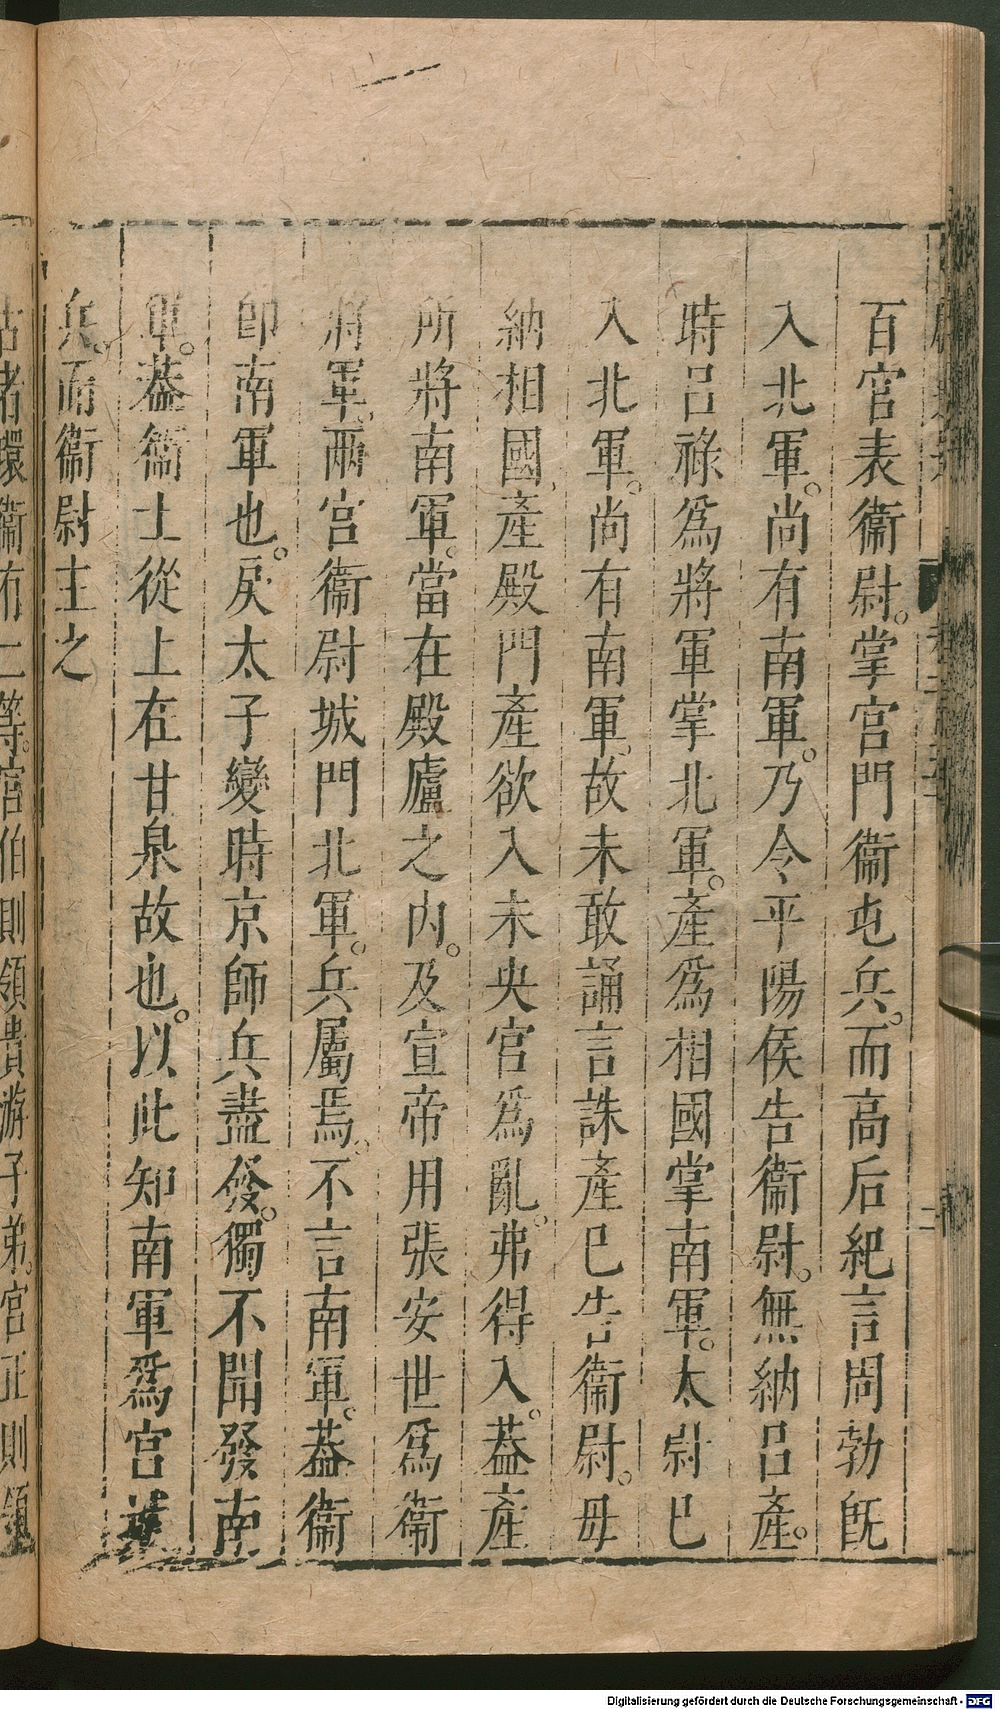 百官表衞尉。掌宮門衞屯兵。而高后紀言周勃旣
入北軍。尚有南軍。乃令平陽侯告衞尉。無納呂產。
時呂祿爲將軍掌北軍。產爲相國掌南軍。太尉已
入北軍。尚有南軍。故未敢誦言誅產已告衞尉。毋
納相國產殿門產欲入未央宮爲亂。弗得入。葢產
所將南軍。當在殿廬之內。及宣帝用張安世爲衞
將軍。兩宮衞尉城門北軍。兵屬焉。不言南軍。葢衞
卽南軍也。戾太子變時京師兵盡發。獨不聞發南
軍。葢衞士從上在甘泉故也。以此知南軍爲宮
兵。而衞尉主之
古者環衞有二等。宮伯則領貴游子弟。宮正則領
Digitalisierung gefördert durch die Deutsche Forschungsgemeinschaft - DFG